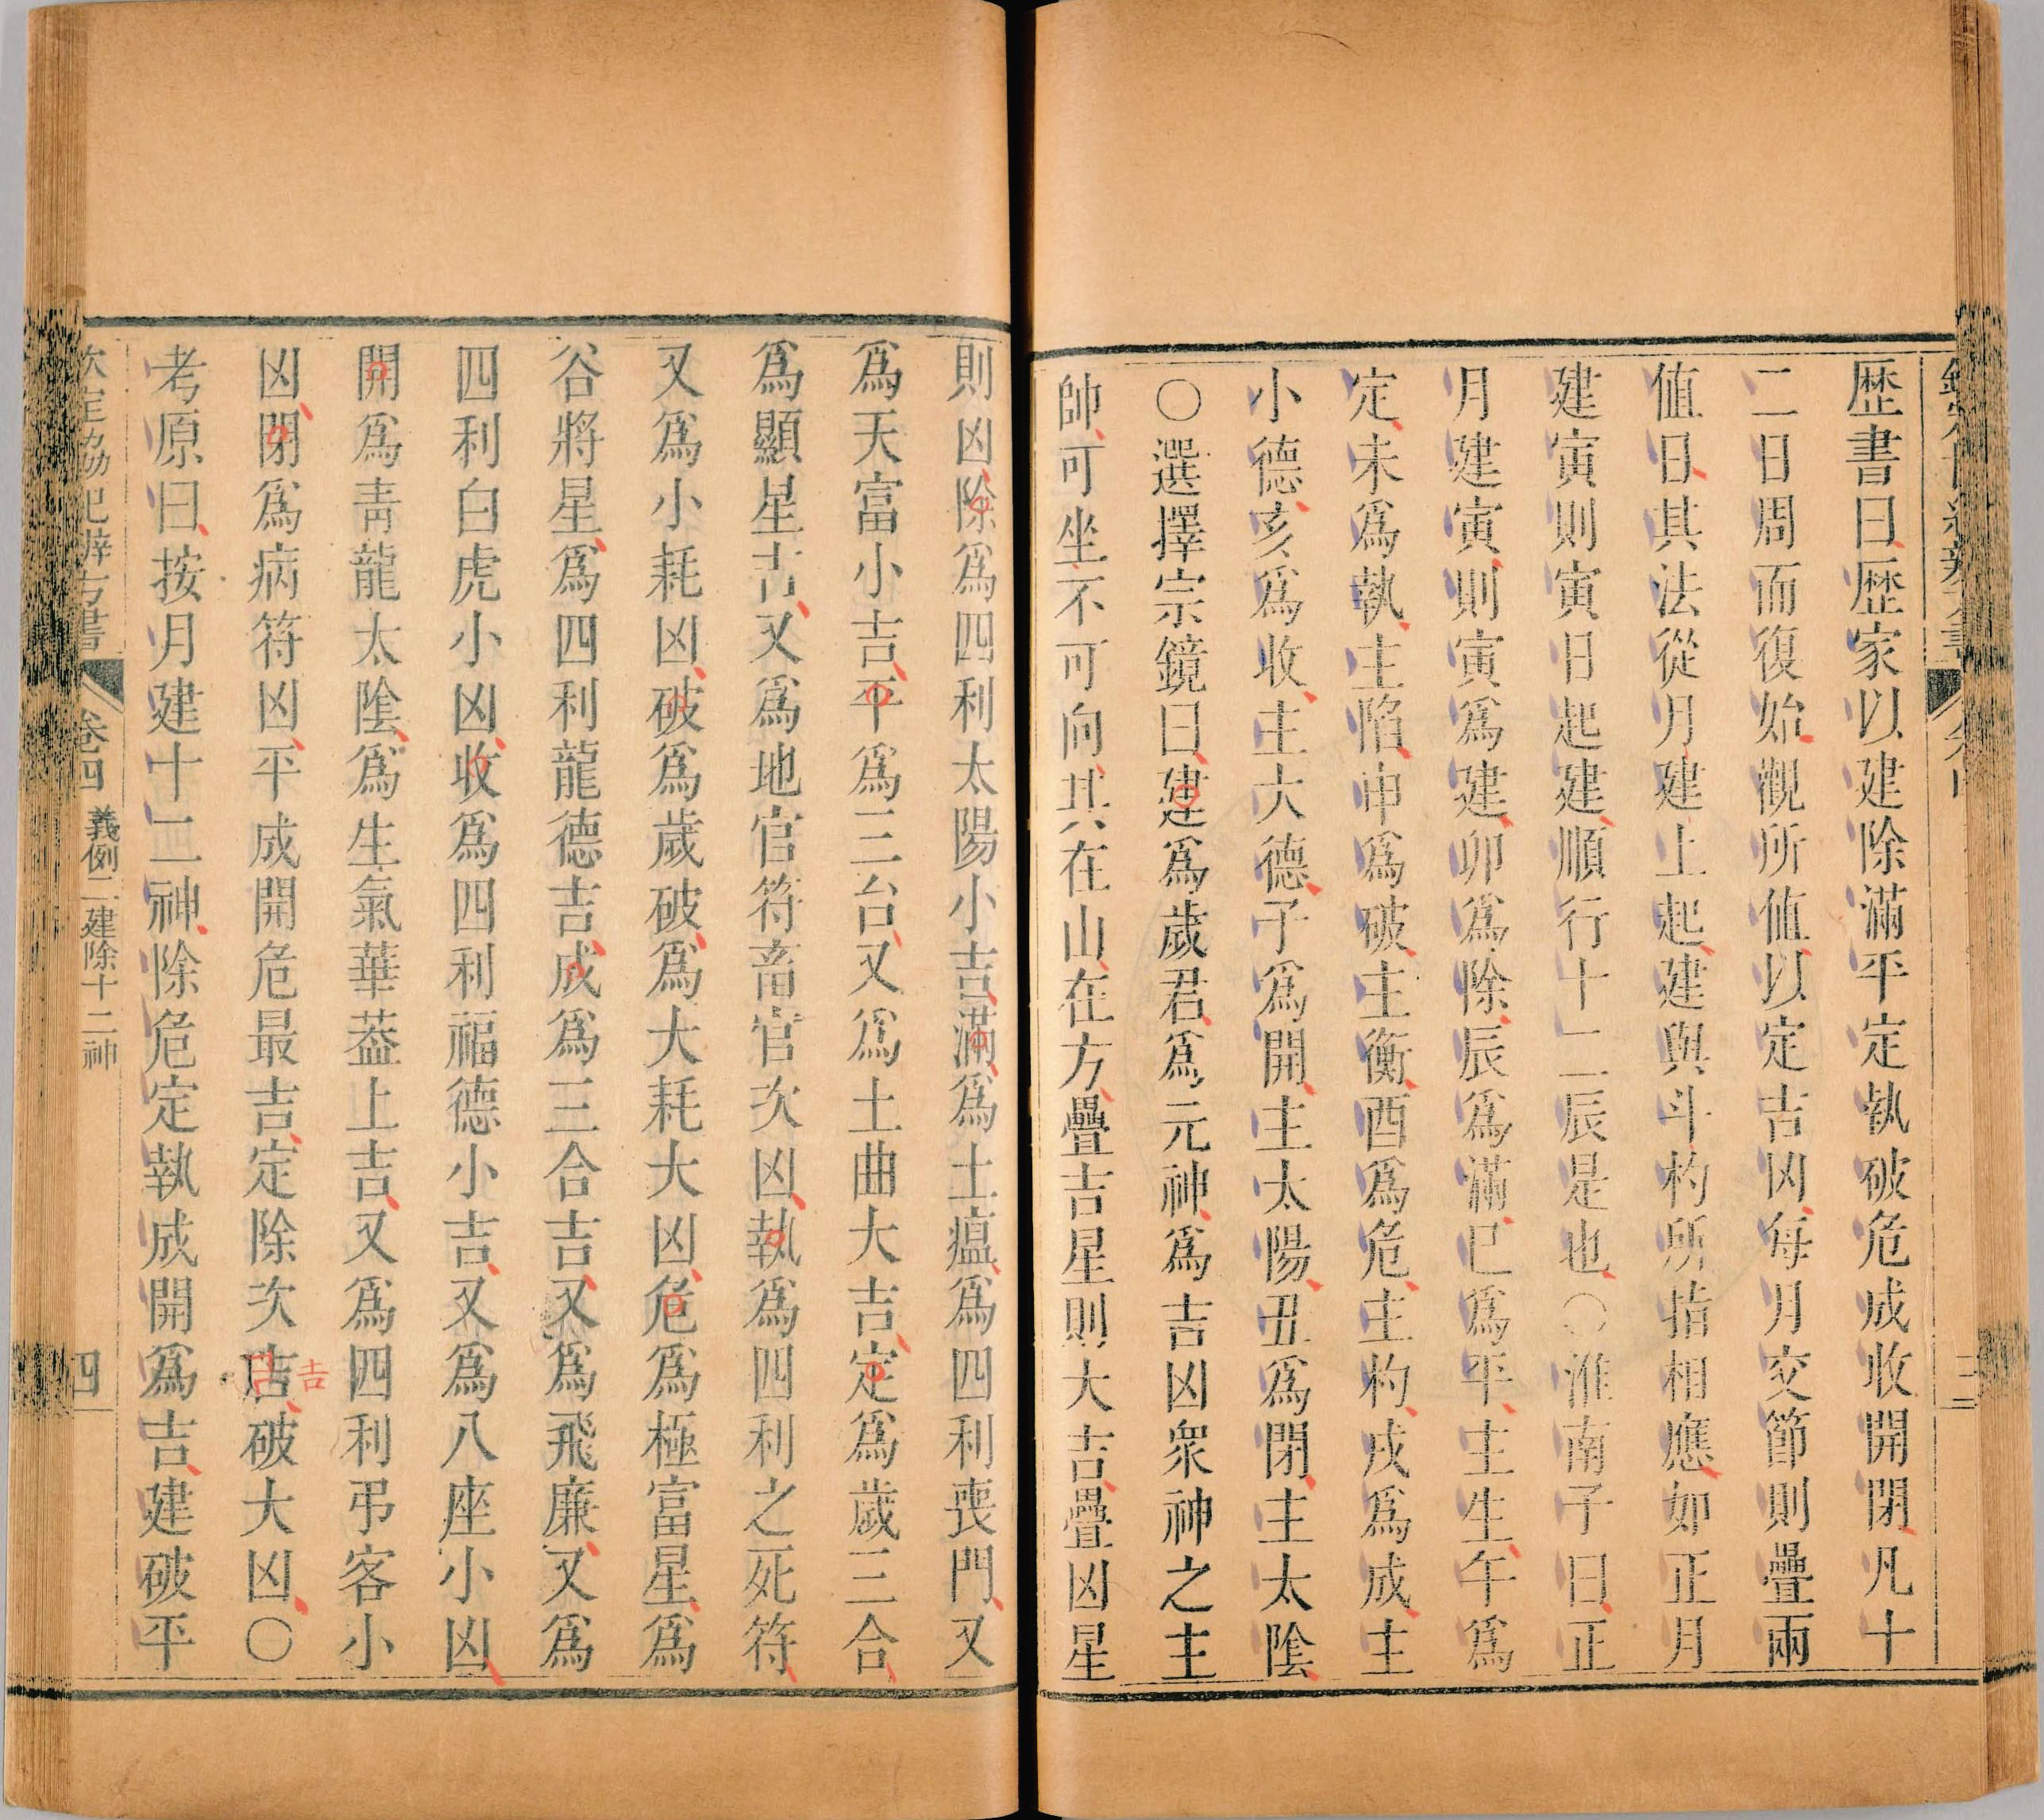 歴書曰歴家以建除滿平定執破危成收開閉凡十
二日周而復始觀所值以定吉凶每月交節則疊兩
值日其法從月建上起建與斗杓所指相應如正月
建寅則寅日起建順行十二辰是也○淮南子曰正
月建寅則寅爲建卯爲除辰爲滿巳爲平主生午爲
定未爲執主陷申爲破主衡酉爲危主杓戌爲成主
小德亥爲收主大德子爲開主太陽丑爲閉主太陰
○選擇宗鏡曰建爲歲君爲元神爲吉凶衆神之主
帥可坐不可向其在山在方疊吉星則大吉疊凶星
則凶除爲四利太陽小吉滿爲土瘟爲四利喪門又
爲天富小吉平爲三台又爲土曲大吉定爲歲三合
爲顯星吉又爲地官符畜官次凶執爲四利之死符
又爲小耗凶破爲歲破爲大耗大凶危爲極富星爲
谷將星爲四利龍德吉成爲三合吉又爲飛廉又爲
四利白虎小凶收爲四利福德小吉又爲八座小凶
開爲靑龍太陰爲生氣華葢上吉又爲四利弔客小
凶閉爲病符凶平成開危最吉定除次吉破大凶○
吉
考原曰按月建十二神除危定執成開爲吉建破平
欽定協紀辨方書 卷四 義例二建除十二神 四